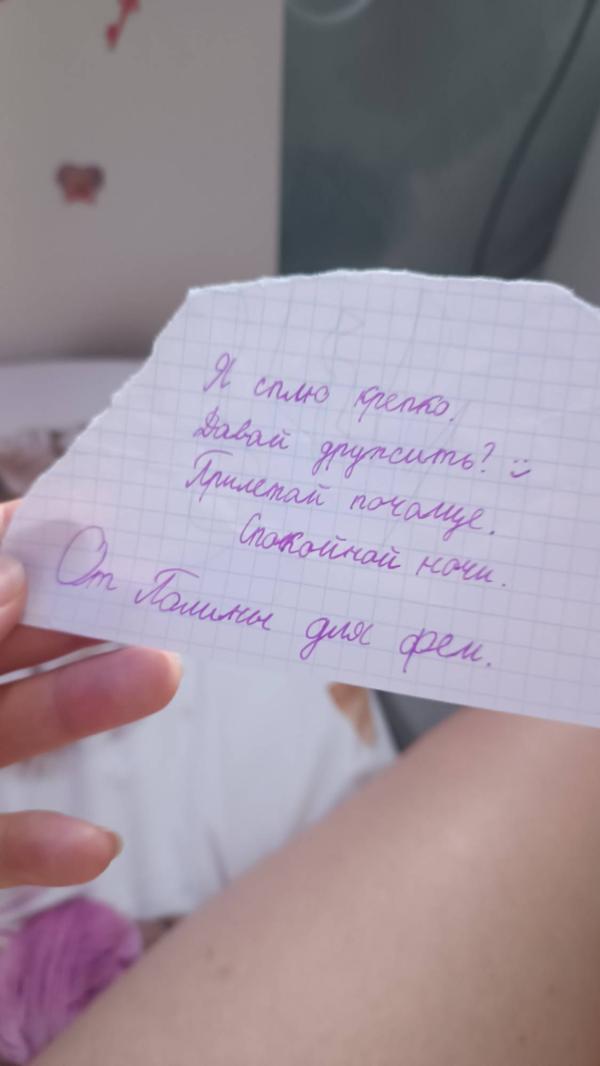 Я сплю крепко.
Давай дружить? :)
Прилетай почаще.
Спокойной ночи.
От Полины для феи.